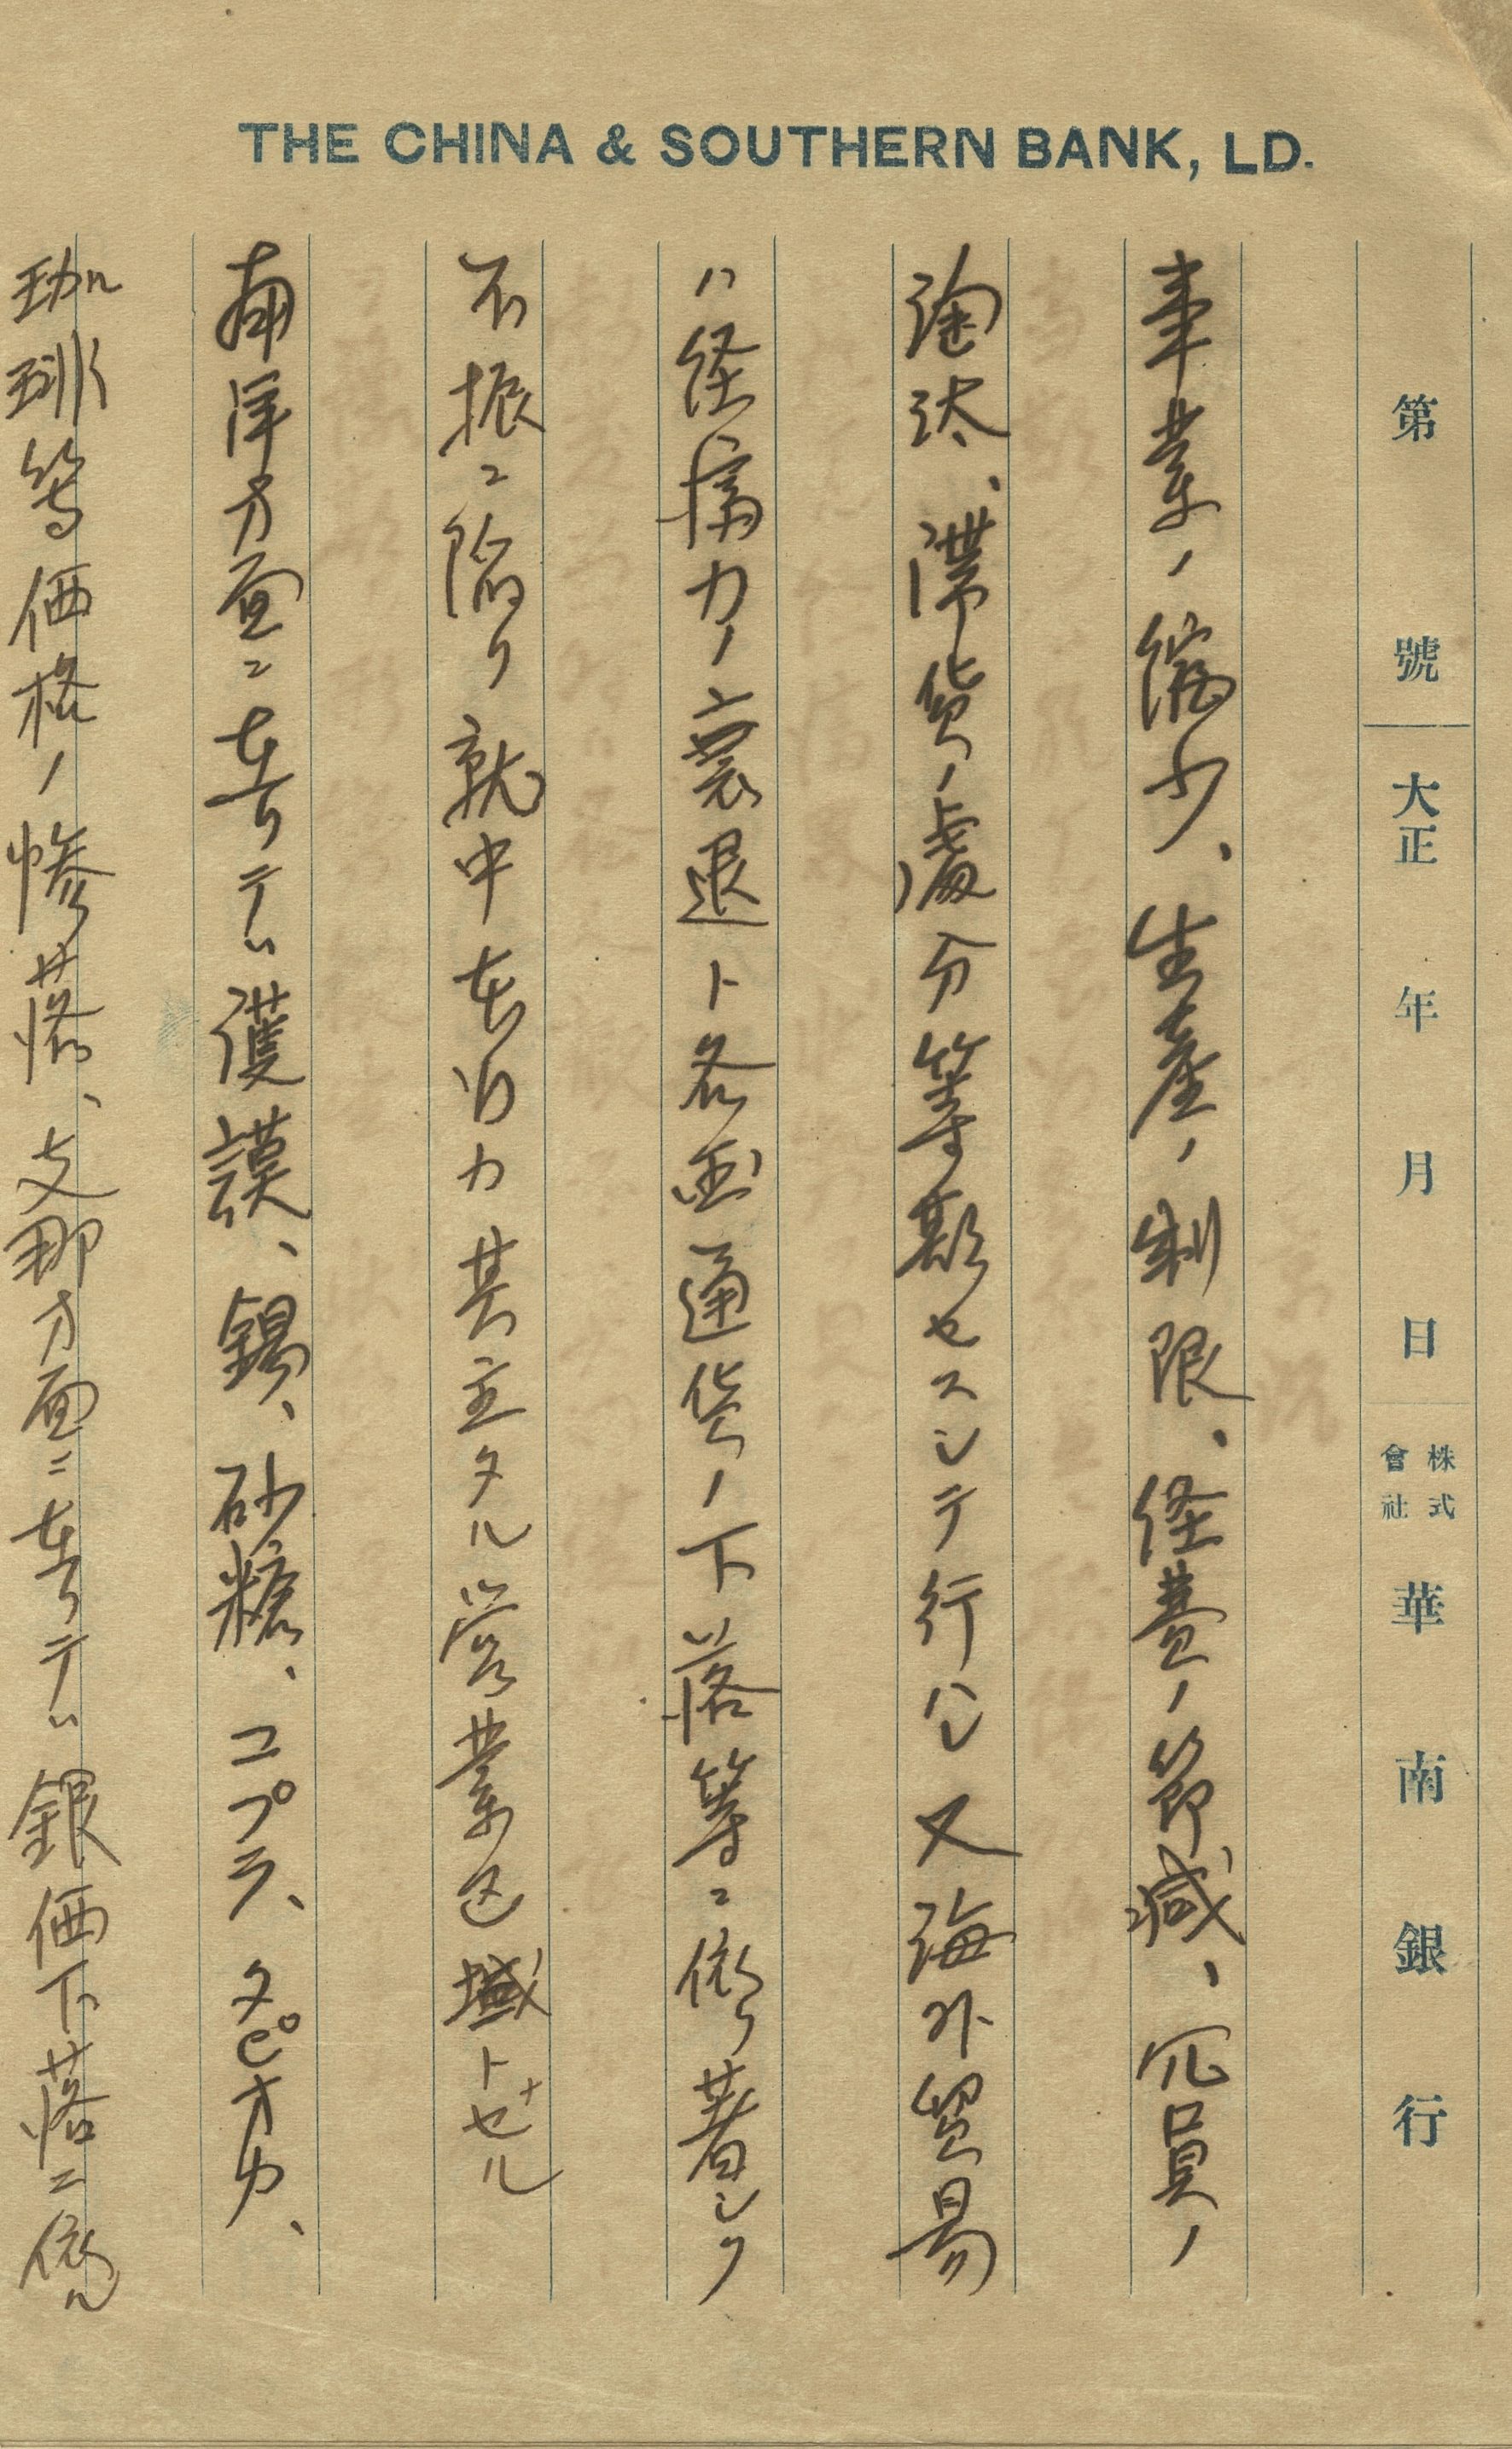 THE CHINA & SOUTHERN BANK, LD.
第 號 大正 年 月 日 株式會社 華南銀行
事業ノ縮少、生産ノ制限、経費ノ節減、冗員ノ
淘汰、滞貨ノ處分等期セスシテ行ハレ又海外貿易
ハ経済力ノ衰退ト各国通貨ノ下落等ニ依リ著シク
不振ニ陥リ就中本行カ其主タル営業区域トナセル
南洋方面ニ在リテハ護謨、錫、砂糖、コプラ、タピオカ、
珈琲等価格ノ惨落、支那方面ニ在リテハ銀価下落ニ依ル